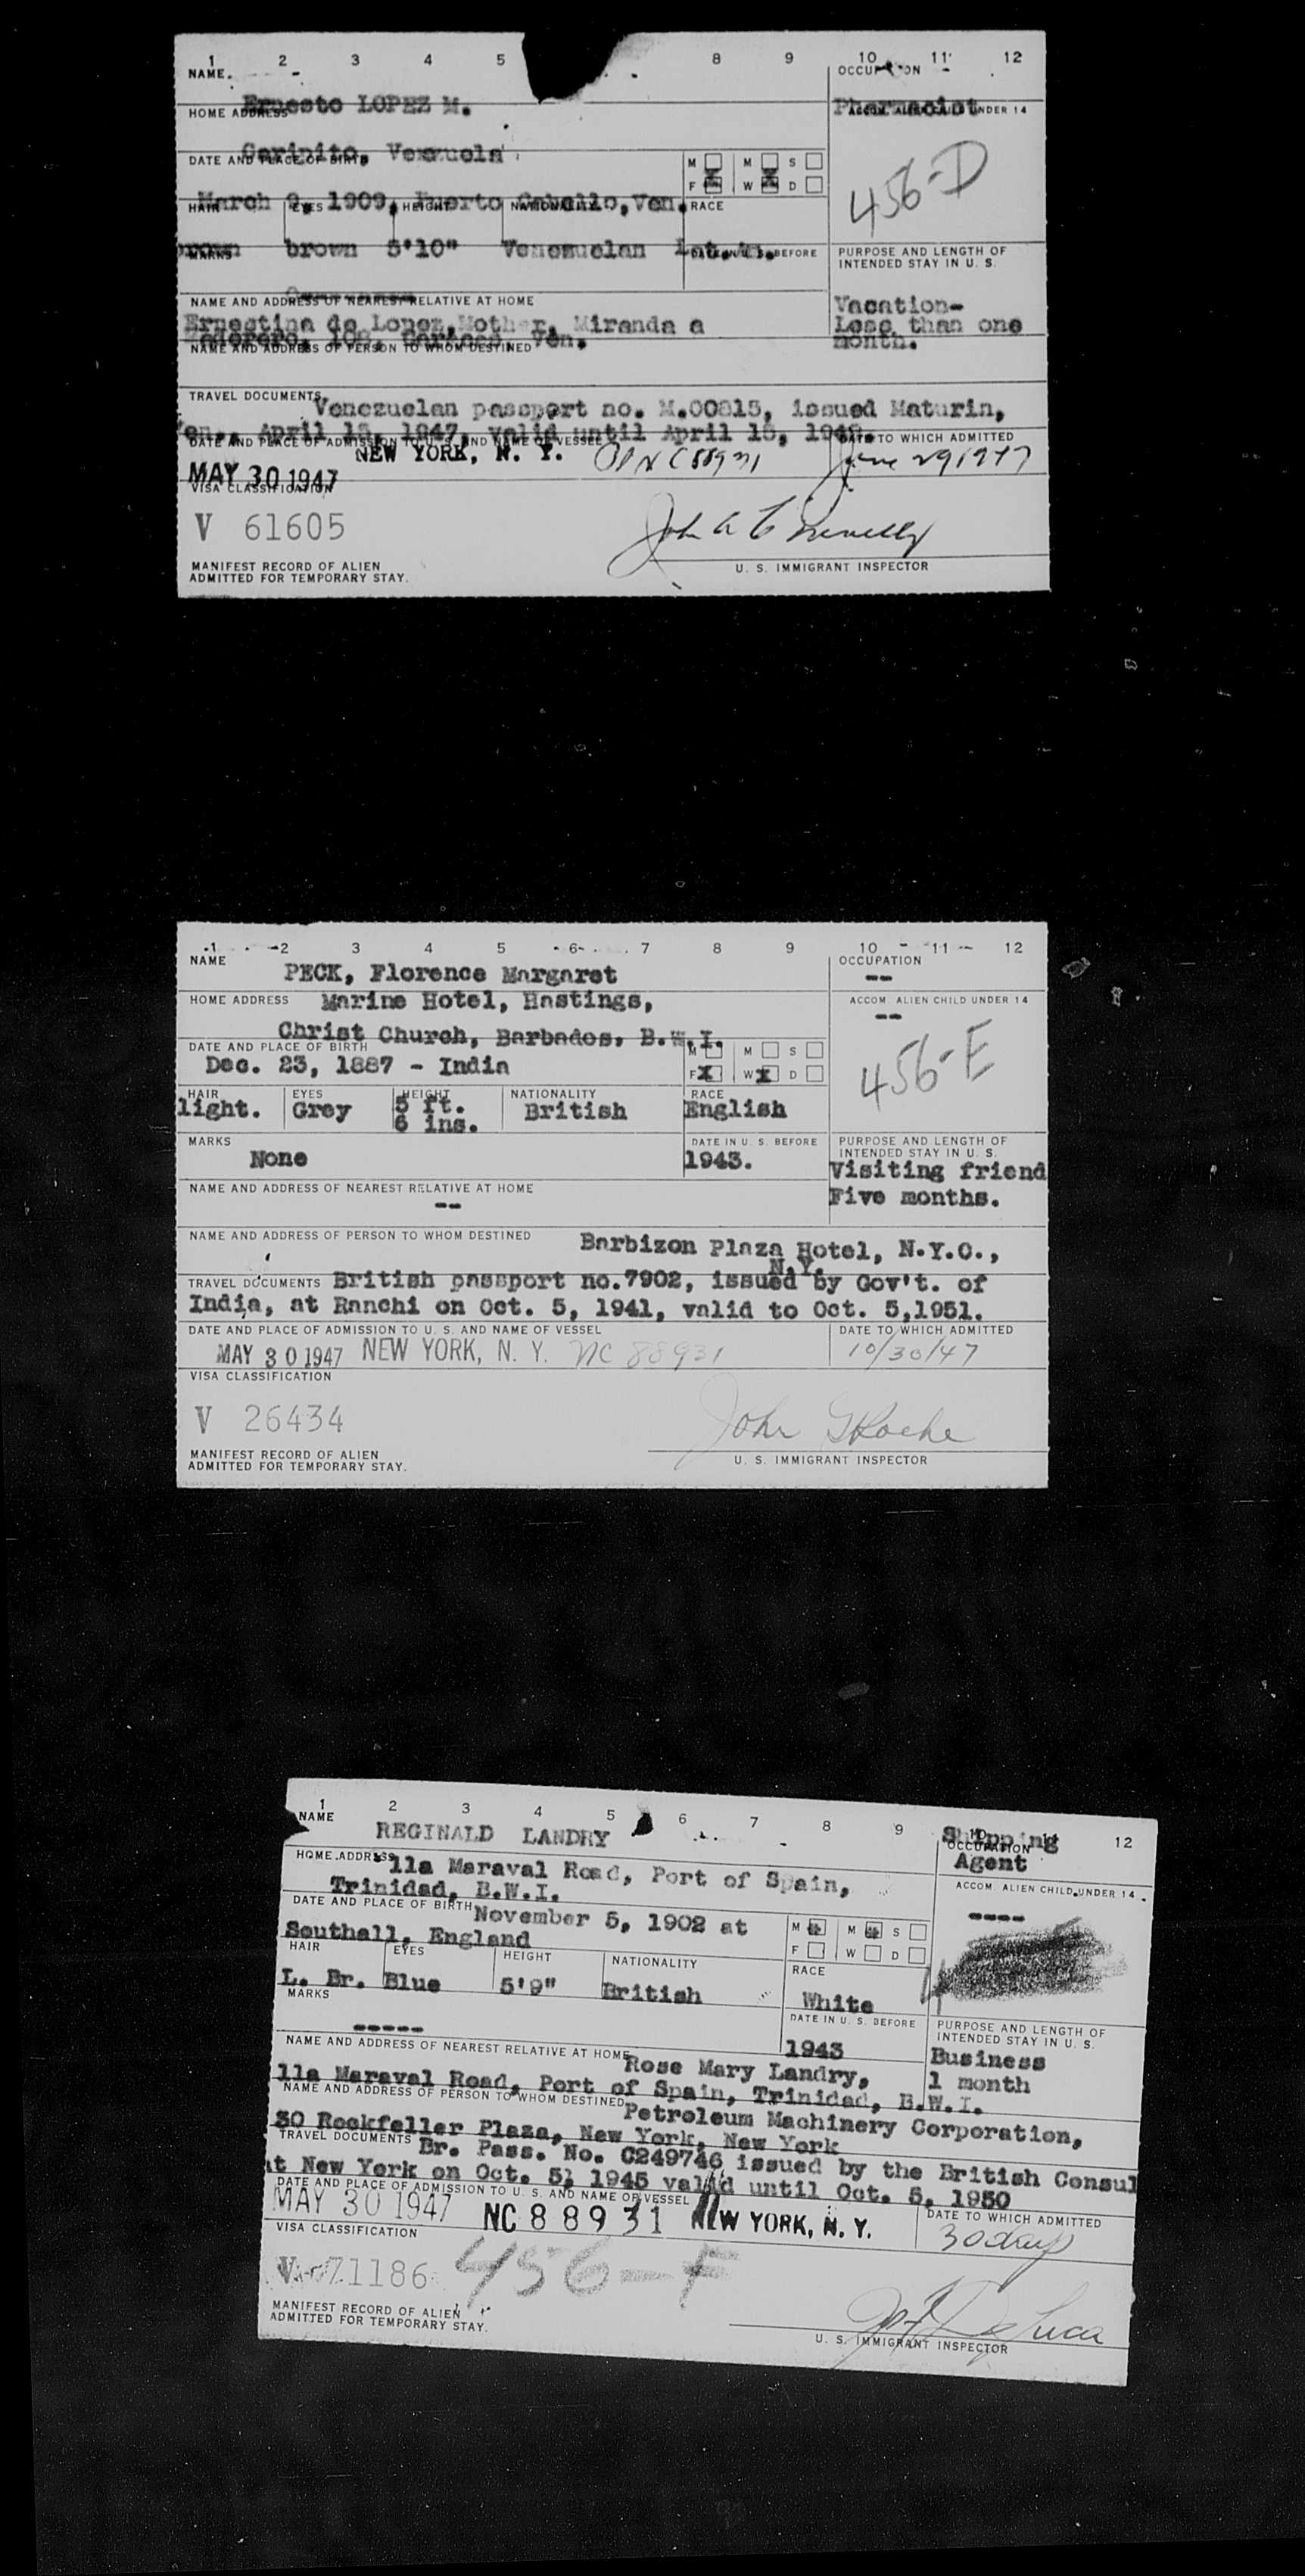 1 2 3 4 5 8 9 10 11 12
NAME
OCCUPATION
Ernesto LOPEZ M.
Pharmacist
HOME ADDRESS
ACCOM. ALIEN CHILD UNDER 14
Caripito, Venezuela
DATE AND PLACE OF BIRTH
M M S
F W D
456-D
March 9, 1909, Puerto Cabello, Ven.
HAIR EYES HEIGHT NATIONALITY RACE
brown brown 5'10" Venezuelan Lat. Am.
MARKS
DATE IN U. S. BEFORE
PURPOSE AND LENGTH OF
INTENDED STAY IN U. S.
NAME AND ADDRESS OF NEAREST RELATIVE AT HOME
Vacation-
Less than one
month.
Ernestina de Lopez, Mother, Miranda a
Maderero, 108, Caracas, Ven.
NAME AND ADDRESS OF PERSON TO WHOM DESTINED
TRAVEL DOCUMENTS
Venezuelan passport no. M.00815, issued Maturin,
Ven., April 15, 1947, valid until April 15, 1948.
DATE AND PLACE OF ADMISSION TO U. S. AND NAME OF VESSEL
DATE TO WHICH ADMITTED
MAY 30 1947 NEW YORK, N. Y. NC 88931 June 29 1947
VISA CLASSIFICATION
V 61605
MANIFEST RECORD OF ALIEN
ADMITTED FOR TEMPORARY STAY.
U. S. IMMIGRANT INSPECTOR
1 2 3 4 5 6 7 8 9 10 11 12
NAME
OCCUPATION
PECK, Florence Margaret
--
HOME ADDRESS Marine Hotel, Hastings,
ACCOM. ALIEN CHILD UNDER 14
--
Christ Church, Barbados, B.W.I.
DATE AND PLACE OF BIRTH
M M S
456-E
Dec. 23, 1887 - India
F X W X D
HAIR EYES HEIGHT NATIONALITY RACE
light. Grey 5 ft. British English
6 ins.
MARKS
DATE IN U. S. BEFORE
PURPOSE AND LENGTH OF
INTENDED STAY IN U. S.
None 1943.
Visiting friend
Five months.
NAME AND ADDRESS OF NEAREST RELATIVE AT HOME
--
NAME AND ADDRESS OF PERSON TO WHOM DESTINED Barbizon Plaza Hotel, N.Y.C.,
N.Y.
TRAVEL DOCUMENTS British passport no.7902, issued by Gov't. of
India, at Ranchi on Oct. 5, 1941, valid to Oct. 5,1951.
DATE AND PLACE OF ADMISSION TO U. S. AND NAME OF VESSEL
DATE TO WHICH ADMITTED
MAY 30 1947 NEW YORK, N. Y. NC 88931 10/30/47
VISA CLASSIFICATION
V 26434
John G Roche
MANIFEST RECORD OF ALIEN
ADMITTED FOR TEMPORARY STAY.
U. S. IMMIGRANT INSPECTOR
1 2 3 4 5 6 7 8 9 10 11 12
NAME
REGINALD LANDRY
OCCUPATION
Shipping
Agent
HOME ADDRESS 11a Maraval Road, Port of Spain,
Trinidad, B.W.I.
ACCOM. ALIEN CHILD UNDER 14
----
DATE AND PLACE OF BIRTH November 5, 1902 at
Southall, England
M M S
F W D
HAIR EYES HEIGHT NATIONALITY RACE
L. Br. Blue 5'9" British White
MARKS
-----
DATE IN U. S. BEFORE
1943
PURPOSE AND LENGTH OF
INTENDED STAY IN U. S.
Business
1 month
NAME AND ADDRESS OF NEAREST RELATIVE AT HOME Rose Mary Landry,
11a Maraval Road, Port of Spain, Trinidad, B.W.I.
NAME AND ADDRESS OF PERSON TO WHOM DESTINED Petroleum Machinery Corporation,
30 Rockfeller Plaza, New York, New York
TRAVEL DOCUMENTS Br. Pass. No. C249746 issued by the British Consul
at New York on Oct. 5, 1945 valid until Oct. 5, 1950
DATE AND PLACE OF ADMISSION TO U. S. AND NAME OF VESSEL
DATE TO WHICH ADMITTED
MAY 30 1947 NC 88931 NEW YORK, N. Y. 30 days
VISA CLASSIFICATION
V 71186 456-F
MANIFEST RECORD OF ALIEN
ADMITTED FOR TEMPORARY STAY.
De Luca
U. S. IMMIGRANT INSPECTOR